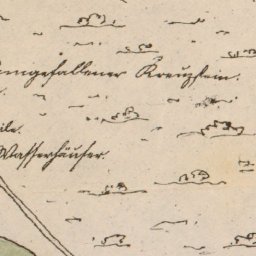 umgefallener Kreuzstein.
Wasserhäuser.